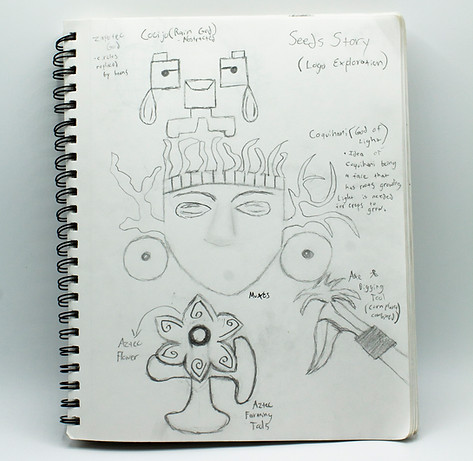 Zapotec
God
replaced
by buns
Cocijo (Rain God)
Seeds Story
(Logo Exploration)
Coquihani (God of
Light)
• Idea of
Coquihani being
a face that
has roots growing.
Light is needed
for crops to
grow.
Axe &
Digging
Tool
(corn plant
combined)
Aztec
Flower
Aztec
Farming
Tools